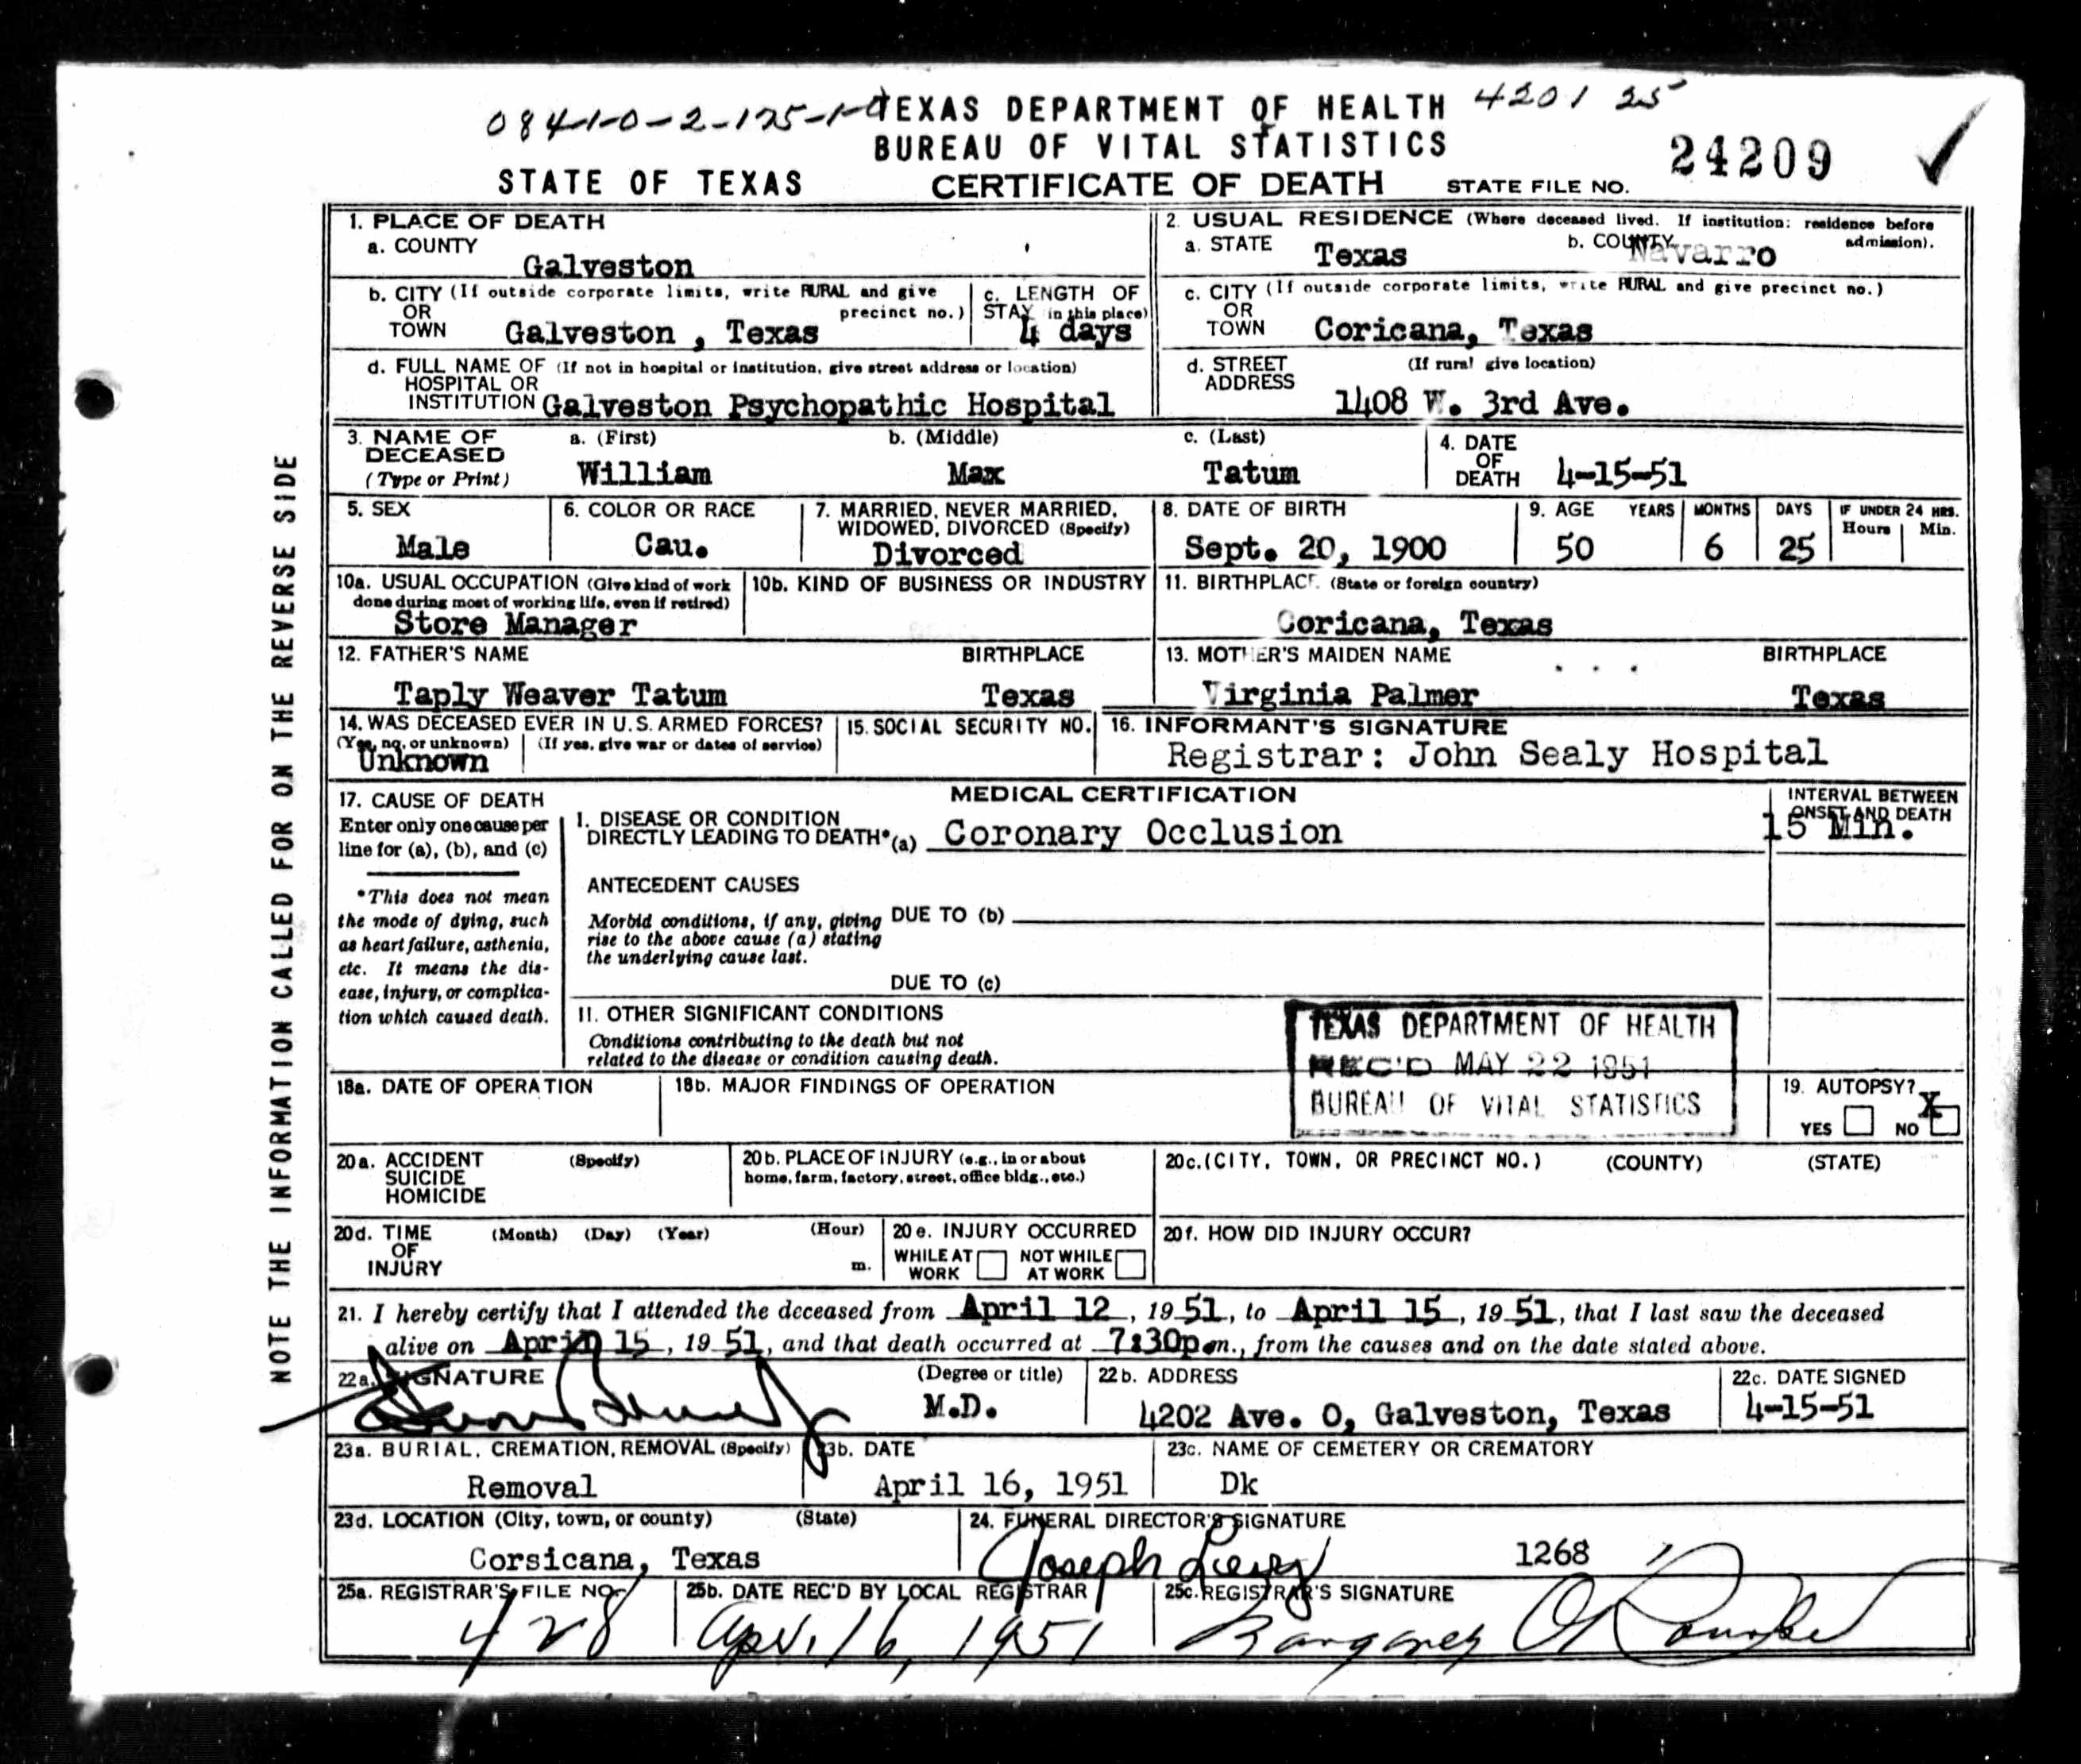 084-1-0-2-125-1-0 TEXAS DEPARTMENT OF HEALTH 4201 25
BUREAU OF VITAL STATISTICS
STATE OF TEXAS CERTIFICATE OF DEATH STATE FILE NO. 24209
NOTE THE INFORMATION CALLED FOR ON THE REVERSE SIDE
1. PLACE OF DEATH
a. COUNTY
Galveston
2. USUAL RESIDENCE (Where deceased lived. If institution: residence before admission).
a. STATE Texas b. COUNTY Navarro
b. CITY (If outside corporate limits, write RURAL and give precinct no.)
OR
TOWN Galveston , Texas
c. LENGTH OF
STAY (in this place)
4 days
c. CITY (If outside corporate limits, write RURAL and give precinct no.)
OR
TOWN Coricana, Texas
d. FULL NAME OF (If not in hospital or institution, give street address or location)
HOSPITAL OR
INSTITUTION Galveston Psychopathic Hospital
d. STREET (If rural give location)
ADDRESS
1408 W. 3rd Ave.
3. NAME OF DECEASED
(Type or Print)
a. (First) b. (Middle) c. (Last)
William Max Tatum
4. DATE
OF
DEATH 4-15-51
5. SEX
Male
6. COLOR OR RACE
Cau.
7. MARRIED, NEVER MARRIED,
WIDOWED, DIVORCED (Specify)
Divorced
8. DATE OF BIRTH
Sept. 20, 1900
9. AGE YEARS MONTHS DAYS IF UNDER 24 HRS.
Hours Min.
50 6 25
10a. USUAL OCCUPATION (Give kind of work
done during most of working life, even if retired)
Store Manager
10b. KIND OF BUSINESS OR INDUSTRY
11. BIRTHPLACE (State or foreign country)
Coricana, Texas
12. FATHER'S NAME BIRTHPLACE
Taply Weaver Tatum Texas
13. MOTHER'S MAIDEN NAME BIRTHPLACE
Virginia Palmer Texas
14. WAS DECEASED EVER IN U.S. ARMED FORCES?
(Yes, no, or unknown) (If yes, give war or dates of service)
Unknown
15. SOCIAL SECURITY NO.
16. INFORMANT'S SIGNATURE
Registrar: John Sealy Hospital
17. CAUSE OF DEATH
Enter only one cause per
line for (a), (b), and (c)
*This does not mean
the mode of dying, such
as heart failure, asthenia,
etc. It means the dis-
ease, injury, or complica-
tion which caused death.
MEDICAL CERTIFICATION
INTERVAL BETWEEN
ONSET AND DEATH
15 Min.
I. DISEASE OR CONDITION
DIRECTLY LEADING TO DEATH* (a) Coronary Occlusion
ANTECEDENT CAUSES
Morbid conditions, if any, giving DUE TO (b)
rise to the above cause (a) stating
the underlying cause last.
DUE TO (c)
II. OTHER SIGNIFICANT CONDITIONS
Conditions contributing to the death but not
related to the disease or condition causing death.
TEXAS DEPARTMENT OF HEALTH
REC'D MAY 22 1951
BUREAU OF VITAL STATISTICS
18a. DATE OF OPERATION
18b. MAJOR FINDINGS OF OPERATION
19. AUTOPSY?
YES NO X
20a. ACCIDENT (Specify)
SUICIDE
HOMICIDE
20b. PLACE OF INJURY (e.g., in or about
home, farm, factory, street, office bldg., etc.)
20c. (CITY, TOWN, OR PRECINCT NO.) (COUNTY) (STATE)
20d. TIME (Month) (Day) (Year) (Hour)
OF
INJURY m.
20e. INJURY OCCURRED
WHILE AT WORK NOT WHILE AT WORK
20f. HOW DID INJURY OCCUR?
21. I hereby certify that I attended the deceased from April 12, 1951, to April 15, 1951, that I last saw the deceased
alive on April 15, 1951, and that death occurred at 7:30p.m., from the causes and on the date stated above.
22a. SIGNATURE (Degree or title)
M.D.
22b. ADDRESS
4202 Ave. O, Galveston, Texas
22c. DATE SIGNED
4-15-51
23a. BURIAL, CREMATION, REMOVAL (Specify)
Removal
23b. DATE
April 16, 1951
23c. NAME OF CEMETERY OR CREMATORY
Dk
23d. LOCATION (City, town, or county) (State)
Corsicana, Texas
24. FUNERAL DIRECTOR'S SIGNATURE
Joseph Levy 1268
25a. REGISTRAR'S FILE NO.
428
25b. DATE REC'D BY LOCAL REGISTRAR
Apr. 16, 1951
25c. REGISTRAR'S SIGNATURE
Margaret O'Rourke